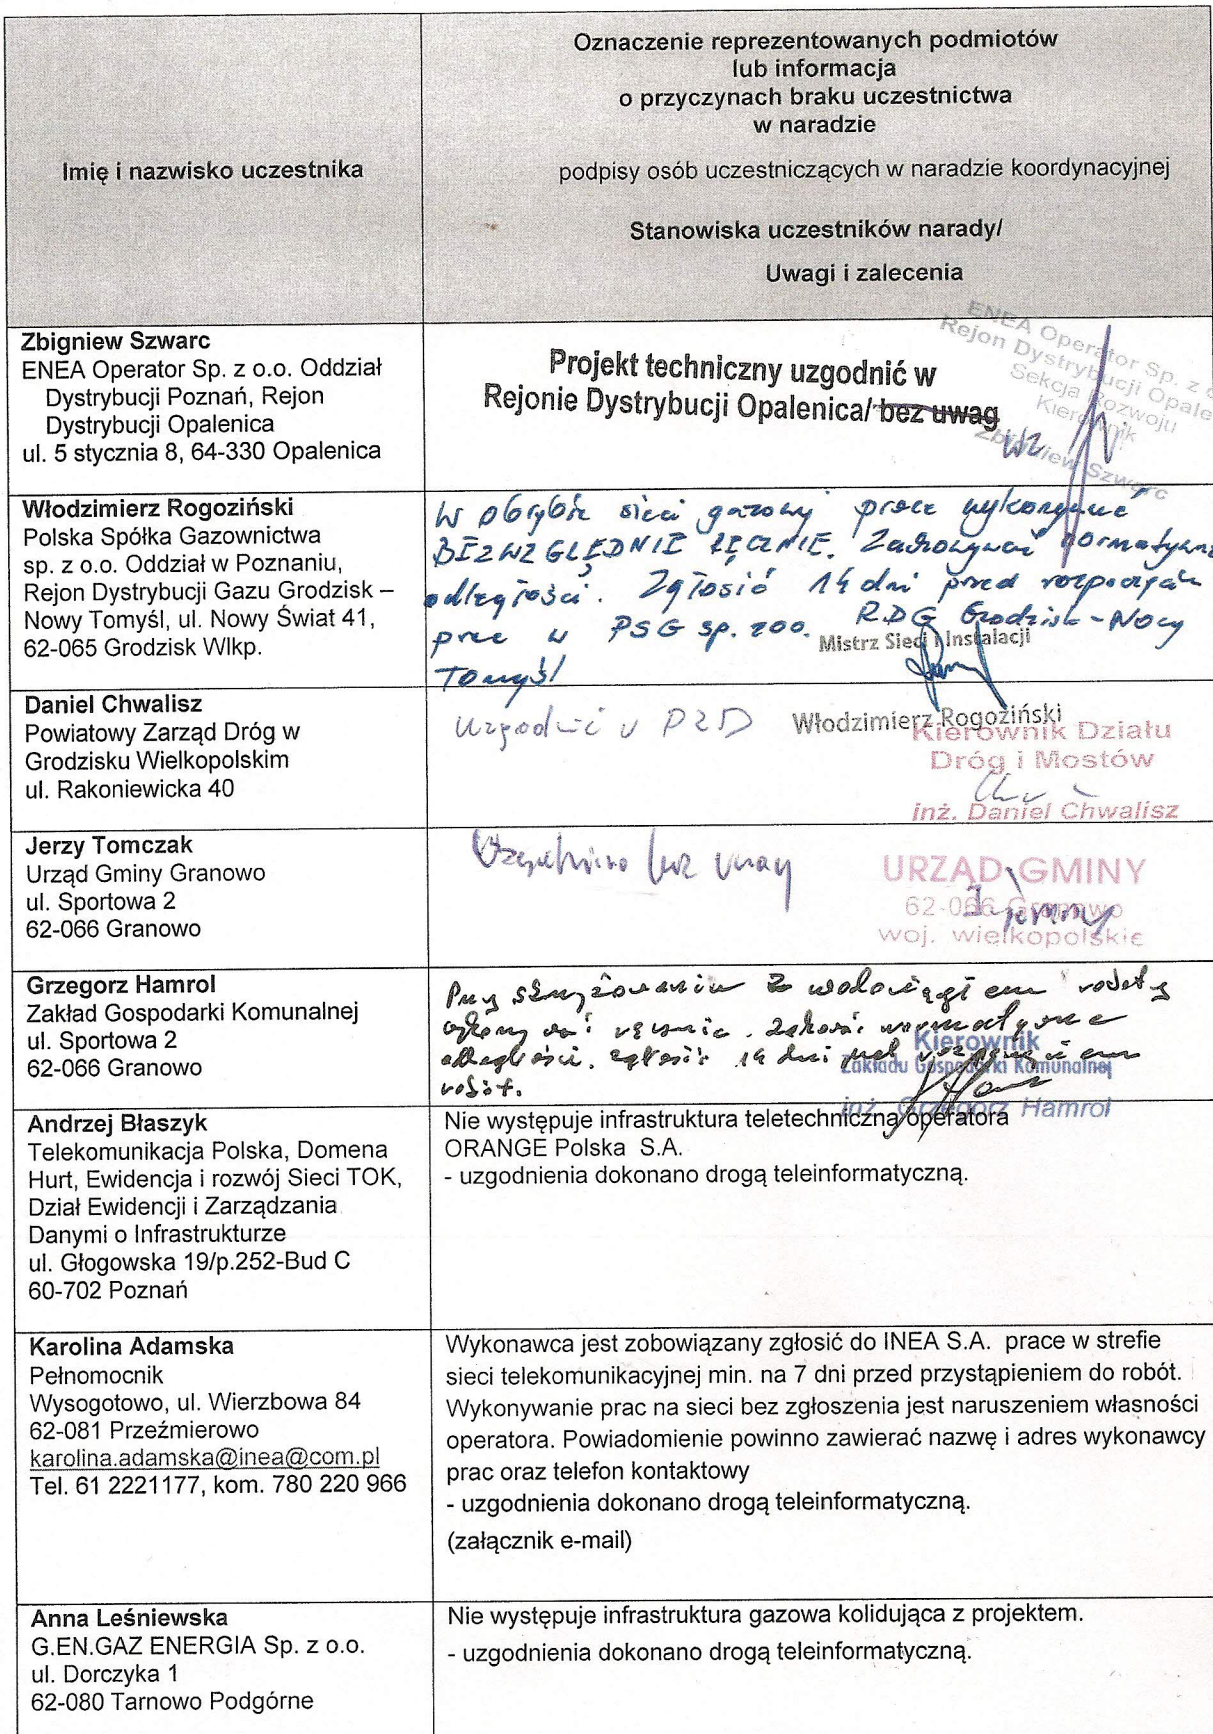 Imię i nazwisko uczestnika
Oznaczenie reprezentowanych podmiotów
lub informacja
o przyczynach braku uczestnictwa
w naradzie
podpisy osób uczestniczących w naradzie koordynacyjnej
Stanowiska uczestników narady/
Uwagi i zalecenia
Zbigniew Szwarc
ENEA Operator Sp. z o.o. Oddział
Dystrybucji Poznań, Rejon
Dystrybucji Opalenica
ul. 5 stycznia 8, 64-330 Opalenica
Projekt techniczny uzgodnić w
Rejonie Dystrybucji Opalenica/ bez uwag
ENEA Operator Sp. z
Rejon Dystrybucji Opale
Sekcja Rozwoju
Kierownik
Zbigniew Szwarc
Włodzimierz Rogoziński
Polska Spółka Gazownictwa
sp. z o.o. Oddział w Poznaniu,
Rejon Dystrybucji Gazu Grodzisk –
Nowy Tomyśl, ul. Nowy Świat 41,
62-065 Grodzisk Wlkp.
W obrębie sieci gazowej prace wykonywać
BEZWZGLĘDNIE RĘCZNIE. Zachowywać normatywne
odległości. Zgłosić 14 dni przed rozpoczęciem
prac w PSG sp. zoo. RDG Grodzisk - Nowy
Tomyśl
Mistrz Sieci i Instalacji
Włodzimierz Rogoziński
Daniel Chwalisz
Powiatowy Zarząd Dróg w
Grodzisku Wielkopolskim
ul. Rakoniewicka 40
Uzgodnić w PZD
Kierownik Działu
Dróg i Mostów
inż. Daniel Chwalisz
Jerzy Tomczak
Urząd Gminy Granowo
ul. Sportowa 2
62-066 Granowo
Uzgodniono bez uwag
URZĄD GMINY
62-066 Granowo
woj. wielkopolskie
Grzegorz Hamrol
Zakład Gospodarki Komunalnej
ul. Sportowa 2
62-066 Granowo
Przy skrzyżowaniu z wodociągiem roboty
wykonywać ręcznie. Zachować normatywne
odległości. Zgłosić 14 dni przed rozpoczęciem
robót.
Kierownik
Zakładu Gospodarki Komunalnej
inż. Grzegorz Hamrol
Andrzej Błaszyk
Telekomunikacja Polska, Domena
Hurt, Ewidencja i rozwój Sieci TOK,
Dział Ewidencji i Zarządzania
Danymi o Infrastrukturze
ul. Głogowska 19/p.252-Bud C
60-702 Poznań
Nie występuje infrastruktura teletechniczna operatora
ORANGE Polska S.A.
- uzgodnienia dokonano drogą teleinformatyczną.
Karolina Adamska
Pełnomocnik
Wysogotowo, ul. Wierzbowa 84
62-081 Przeźmierowo
karolina.adamska@inea@com.pl
Tel. 61 2221177, kom. 780 220 966
Wykonawca jest zobowiązany zgłosić do INEA S.A. prace w strefie
sieci telekomunikacyjnej min. na 7 dni przed przystąpieniem do robót.
Wykonywanie prac na sieci bez zgłoszenia jest naruszeniem własności
operatora. Powiadomienie powinno zawierać nazwę i adres wykonawcy
prac oraz telefon kontaktowy
- uzgodnienia dokonano drogą teleinformatyczną.
(załącznik e-mail)
Anna Leśniewska
G.EN.GAZ ENERGIA Sp. z o.o.
ul. Dorczyka 1
62-080 Tarnowo Podgórne
Nie występuje infrastruktura gazowa kolidująca z projektem.
- uzgodnienia dokonano drogą teleinformatyczną.